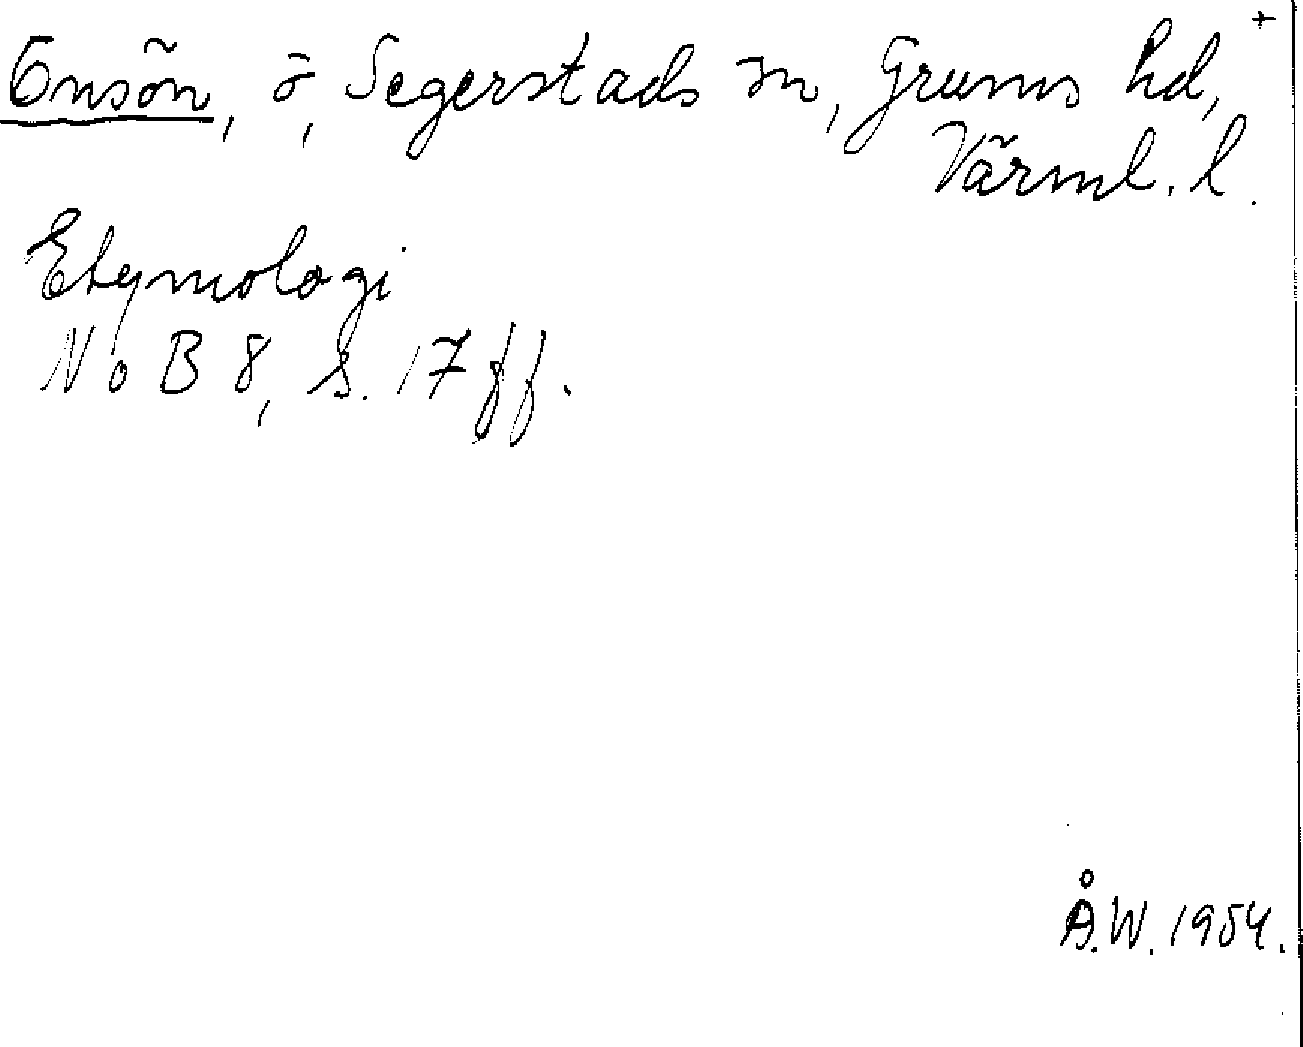 Onsön, ö, Segerstads sn, Grums hd, +
Värml. l.
Etymologi
NoB 8, s. 17 ff.
Å.W. 1954.